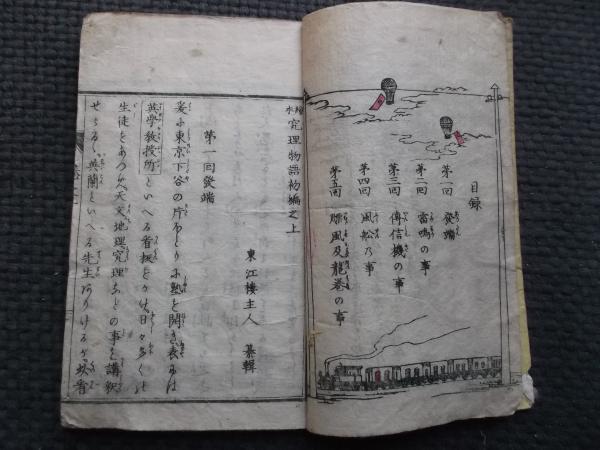 目録
第一回 發端
第二回 雷鳴の事
第三回 傳信機の事
第四回 風舩乃事
第五回 颶風及龍巻の事
究理物語初編之上
東江樓主人 纂輯
第一回發端
爰に東京下谷の片ほとりに塾を開き表には
英學教授所といへる看板をかけ日々多くの
生徒をあつめ天文地理究理などの事を講釈
せらるゝ英蘭といへる先生ありけるが